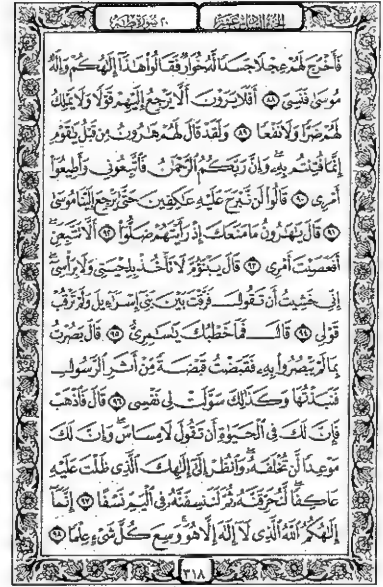 الجزء السادس عشر
٢٠ سورة طه
فَأَخْرَجَ لَهُمْ عِجْلًا جَسَدًا لَّهُ خُوَارٌ فَقَالُوا هَٰذَا إِلَٰهُكُمْ وَإِلَٰهُ
مُوسَىٰ فَنَسِيَ ٨٨ أَفَلَا يَرَوْنَ أَلَّا يَرْجِعُ إِلَيْهِمْ قَوْلًا وَلَا يَمْلِكُ
لَهُمْ ضَرًّا وَلَا نَفْعًا ٨٩ وَلَقَدْ قَالَ لَهُمْ هَارُونُ مِن قَبْلُ يَٰقَوْمِ
إِنَّمَا فُتِنتُم بِهِ وَإِنَّ رَبَّكُمُ الرَّحْمَٰنُ فَاتَّبِعُونِي وَأَطِيعُوا
أَمْرِي ٩٠ قَالُوا لَن نَّبْرَحَ عَلَيْهِ عَٰكِفِينَ حَتَّىٰ يَرْجِعَ إِلَيْنَا مُوسَىٰ
٩١ قَالَ يَٰهَٰرُونُ مَا مَنَعَكَ إِذْ رَأَيْتَهُمْ ضَلُّوا ٩٢ أَلَّا تَتَّبِعَنِ
أَفَعَصَيْتَ أَمْرِي ٩٣ قَالَ يَبْنَؤُمَّ لَا تَأْخُذْ بِلِحْيَتِي وَلَا بِرَأْسِي
إِنِّي خَشِيتُ أَن تَقُولَ فَرَّقْتَ بَيْنَ بَنِي إِسْرَٰءِيلَ وَلَمْ تَرْقُبْ
قَوْلِي ٩٤ قَالَ فَمَا خَطْبُكَ يَٰسَٰمِرِيُّ ٩٥ قَالَ بَصُرْتُ
بِمَا لَمْ يَبْصُرُوا بِهِ فَقَبَضْتُ قَبْضَةً مِّنْ أَثَرِ الرَّسُولِ
فَنَبَذْتُهَا وَكَذَٰلِكَ سَوَّلَتْ لِي نَفْسِي ٩٦ قَالَ فَاذْهَبْ
فَإِنَّ لَكَ فِي الْحَيَوٰةِ أَن تَقُولَ لَا مِسَاسَ وَإِنَّ لَكَ
مَوْعِدًا لَّن تُخْلَفَهُ وَانظُرْ إِلَىٰ إِلَٰهِكَ الَّذِي ظَلْتَ عَلَيْهِ
عَاكِفًا لَّنُحَرِّقَنَّهُ ثُمَّ لَنَنسِفَنَّهُ فِي الْيَمِّ نَسْفًا ٩٧ إِنَّمَا
إِلَٰهُكُمُ اللَّهُ الَّذِي لَا إِلَٰهَ إِلَّا هُوَ وَسِعَ كُلَّ شَيْءٍ عِلْمًا ٩٨
٣١٨